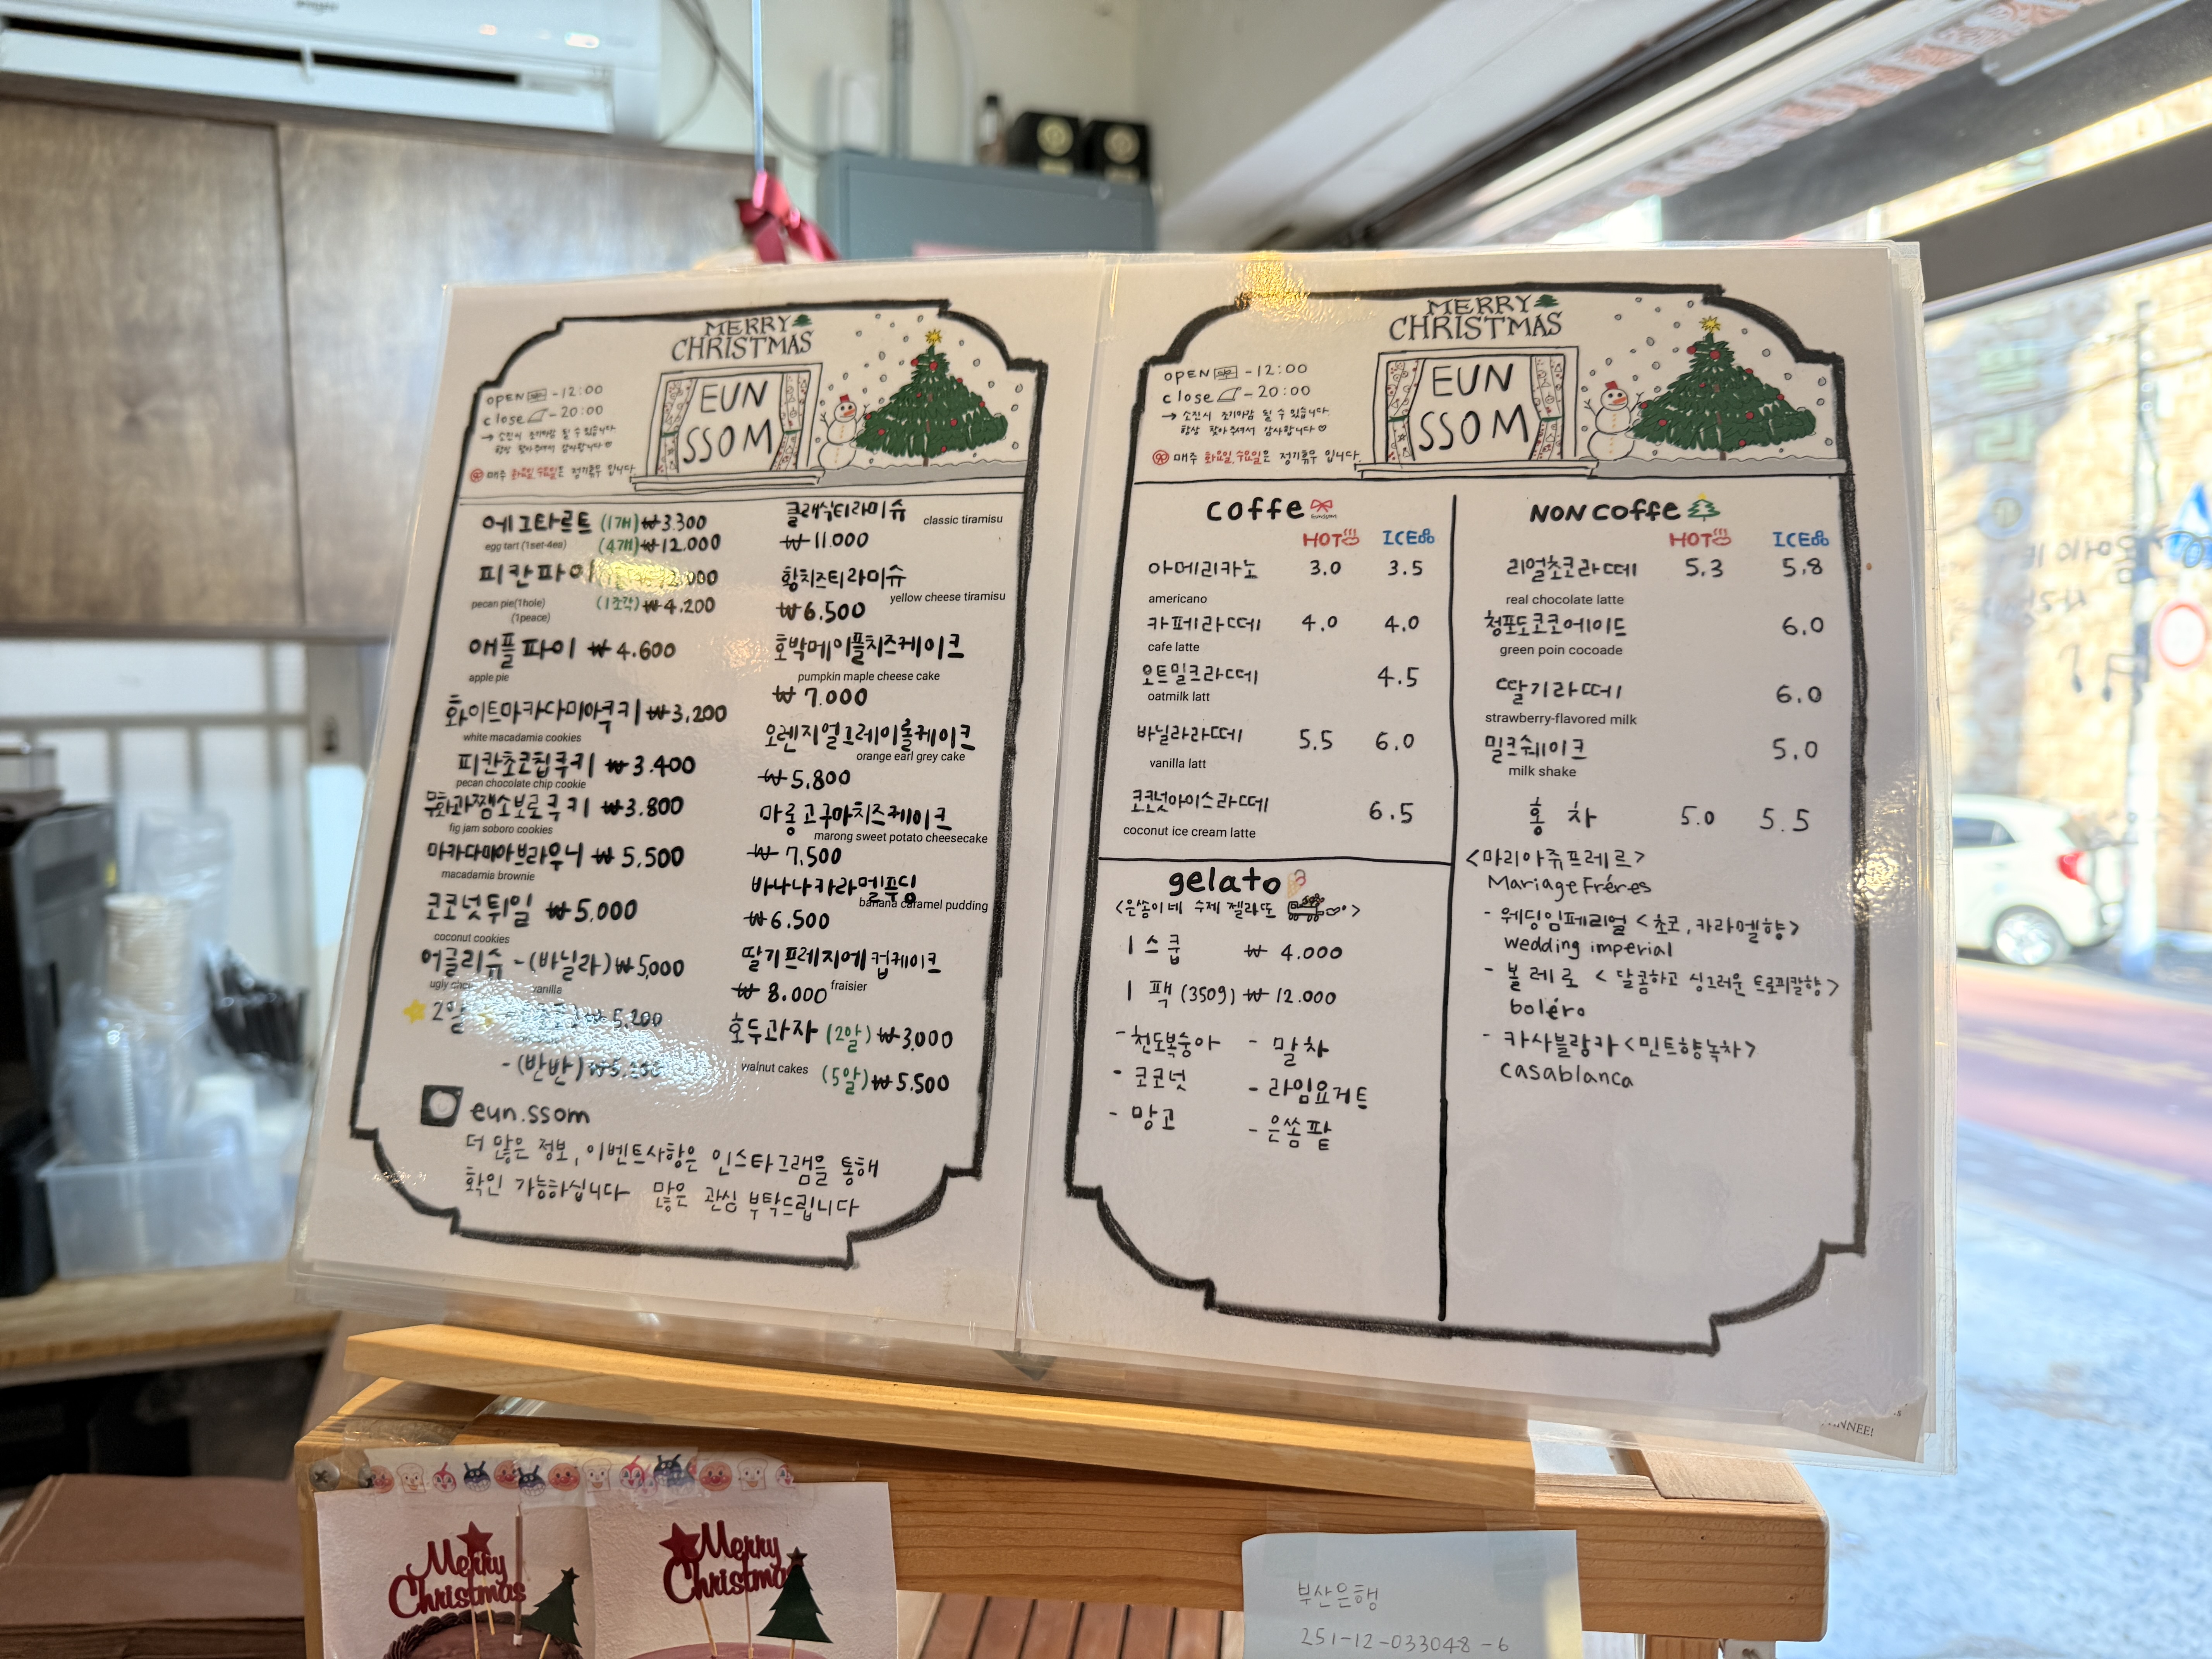 MERRY
CHRISTMAS
EUN
SSOM
OPEN -12:00
close -20:00
→ 소진시 조기마감 될 수 있습니다.
항상 찾아주셔서 감사합니다♡
매주 화요일, 수요일은 정기휴무 입니다.
에그타르트 (1개) ₩3.300
egg tart (1set-4ea) (4개) ₩12.000
피칸파이
pecan pie(1hole) (1조각) ₩4.200
(1peace)
애플파이 ₩4.600
apple pie
화이트마카다미아쿡키 ₩3,200
white macadamia cookies
피칸초코칩쿠키 ₩3.400
pecan chocolate chip cookie
무화과쨈소보로쿠키 ₩3.800
fig jam soboro cookies
마카다미아브라우니 ₩5,500
macadamia brownie
코코넛튀일 ₩5,000
coconut cookies
어글리슈 -(바닐라) ₩5,000
ugly vanilla
2알 ₩5,200
-(반반)
클래식티라미슈 classic tiramisu
₩11.000
황치즈티라미슈
yellow cheese tiramisu
₩6.500
호박메이플치즈케이크
pumpkin maple cheese cake
₩7.000
오렌지얼그레이롤케이크
orange earl grey cake
₩5,800
마롱고구마치즈케이크
marong sweet potato cheesecake
₩7,500
바나나카라멜푸딩
banana caramel pudding
₩6.500
딸기프레지에컵케이크
₩8.000 fraisier
호두과자 (2알) ₩3,000
walnut cakes (5알) ₩5.500
eun.ssom
더 많은 정보, 이벤트사항은 인스타그램을 통해
확인 가능하십니다 많은 관심 부탁드립니다
MERRY
CHRISTMAS
EUN
SSOM
OPEN -12:00
close -20:00
→ 소진시 조기마감 될 수 있습니다.
항상 찾아주셔서 감사합니다♡
매주 화요일, 수요일은 정기휴무 입니다.
coffe
HOT ICE
아메리카노 3.0 3.5
americano
카페라떼 4.0 4.0
cafe latte
오트밀크라떼 4.5
oatmilk latt
바닐라라떼 5.5 6.0
vanilla latt
코코넛아이스라떼 6.5
coconut ice cream latte
gelato
<은쏭이네 수제 젤라또>
1 스쿱 ₩4.000
1 팩 (350g) ₩12.000
- 천도복숭아 - 말차
- 코코넛 - 라임요거트
- 망고 - 은쏨팥
NON coffe
HOT ICE
리얼초코라떼 5.3 5.8
real chocolate latte
청포도코코에이드 6.0
green poin cocoade
딸기라떼 6.0
strawberry-flavored milk
밀크쉐이크 5.0
milk shake
홍 차 5.0 5.5
<마리아쥬프레르>
Mariage Fréres
- 웨딩임페리얼 <초코, 카라멜향>
wedding imperial
- 볼레로 <달콤하고 싱그러운 트로피칼향>
boléro
- 카사블랑카 <민트향녹차>
casablanca
Merry
Christmas
Merry
Christmas
부산은행
251-12-033048-6